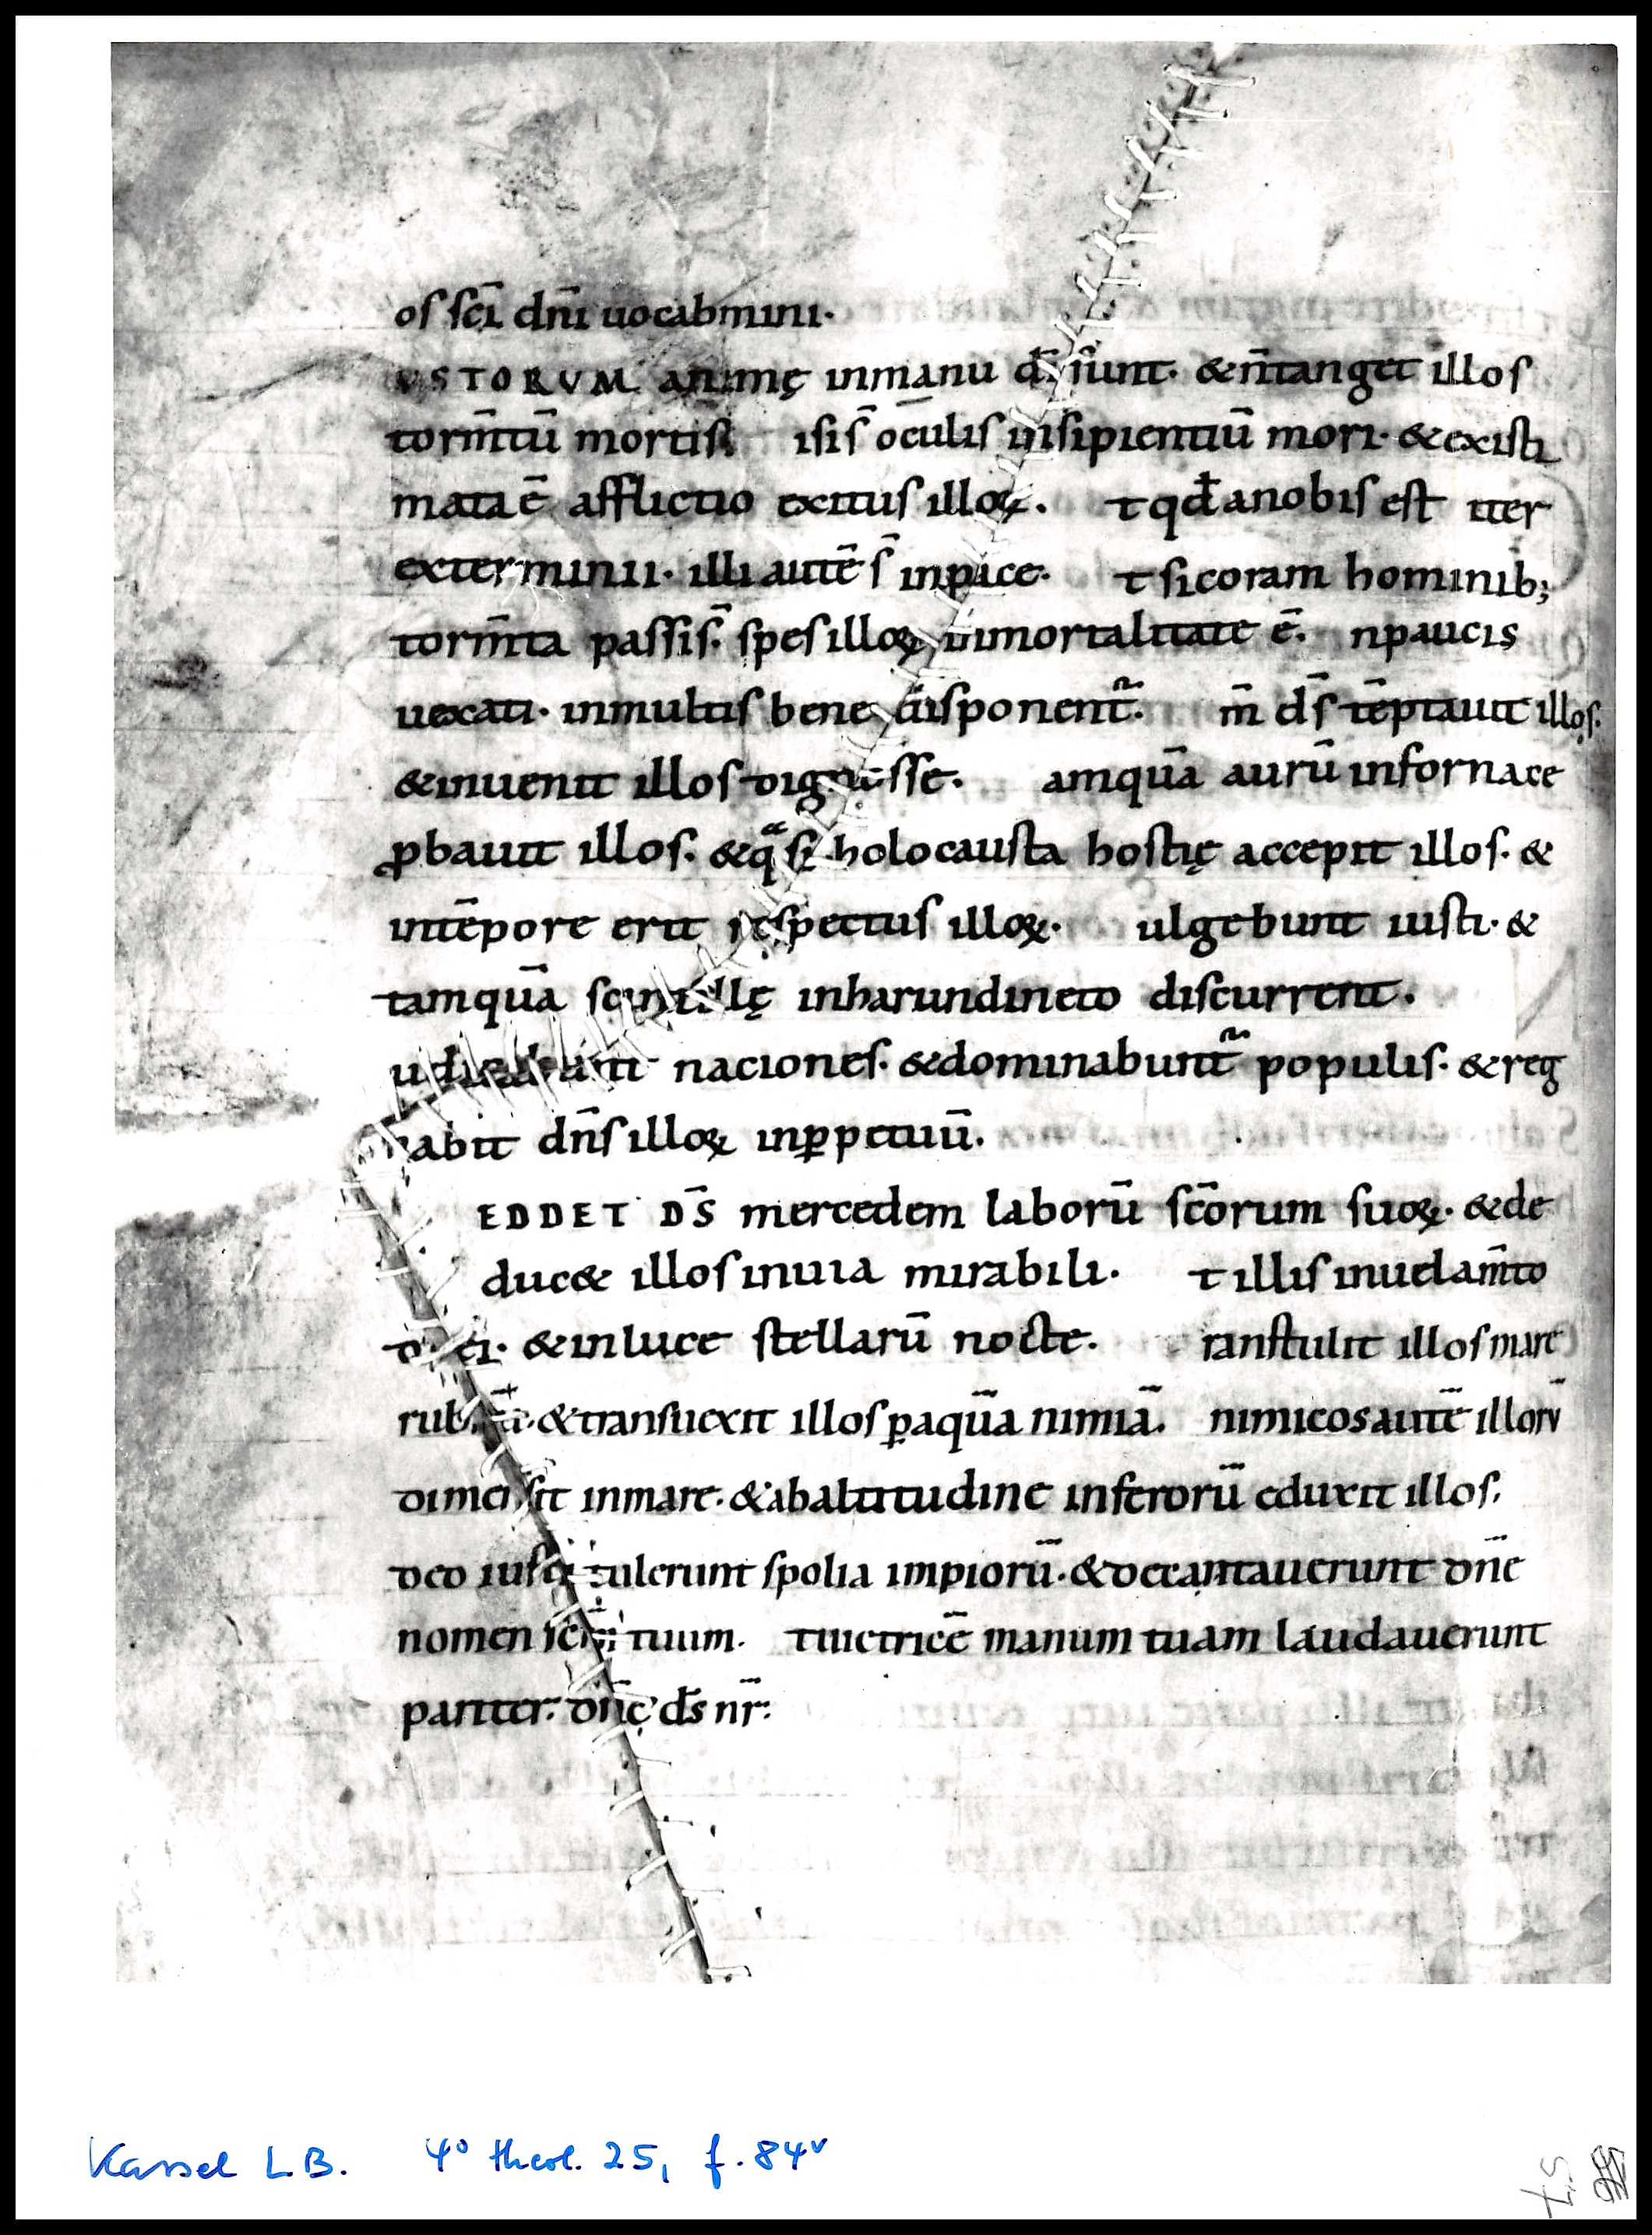 os sc̄i dn̄i uocabmini·
USTORVM animę inmanu d̄i sunt· & n̄tanget illos
torm̄tū mortis isi s̄ oculis insipientiū mori· & existi
mata ē afflictio exitus illoꝝ. t qd̄ anobis est iter
exterminii· illi autē s̄ inpace· t sicoram hominib;
torm̄ta passi s̄· spes illoꝝ inmortalitate ē. npaucis
uexati· inmultis bene disponent᷑. m̄ ds̄ tēptauit illos.
& inuenit illos dignos se. amquā aurū infornace
ꝓbauit illos· & qͣsi holocausta hostię accepit illos· &
intēpore erit respectus illoꝝ· ulgebunt iusti· &
tamquā scintillę inharundineto discurrent.
udicabunt naciones· & dominabunt᷑ populis· & reg
nabit dn̄s illoꝝ inꝑpetuū.
EDDET DS̄ mercedem laborū sc̄orum suoꝝ· & de
duc& illos inuia mirabili· t illis inuelam̄to
diei· & inluce stellarū nocte. ranstulit illos mare
rubrū· & transuexit illos ꝑaquā nimiā. nimicos autē illorū
dimersit inmare· & abaltitudine inferorū eduxit illos.
deo iusti tulerunt spolia impiorū· & decantauerunt dn̄e
nomen sc̄m tuum· t uictricē manum tuam laudauerunt
pariter· dn̄e ds̄ nr̄:
Kassel L.B. 4° theol. 25, f. 84ᵛ
57